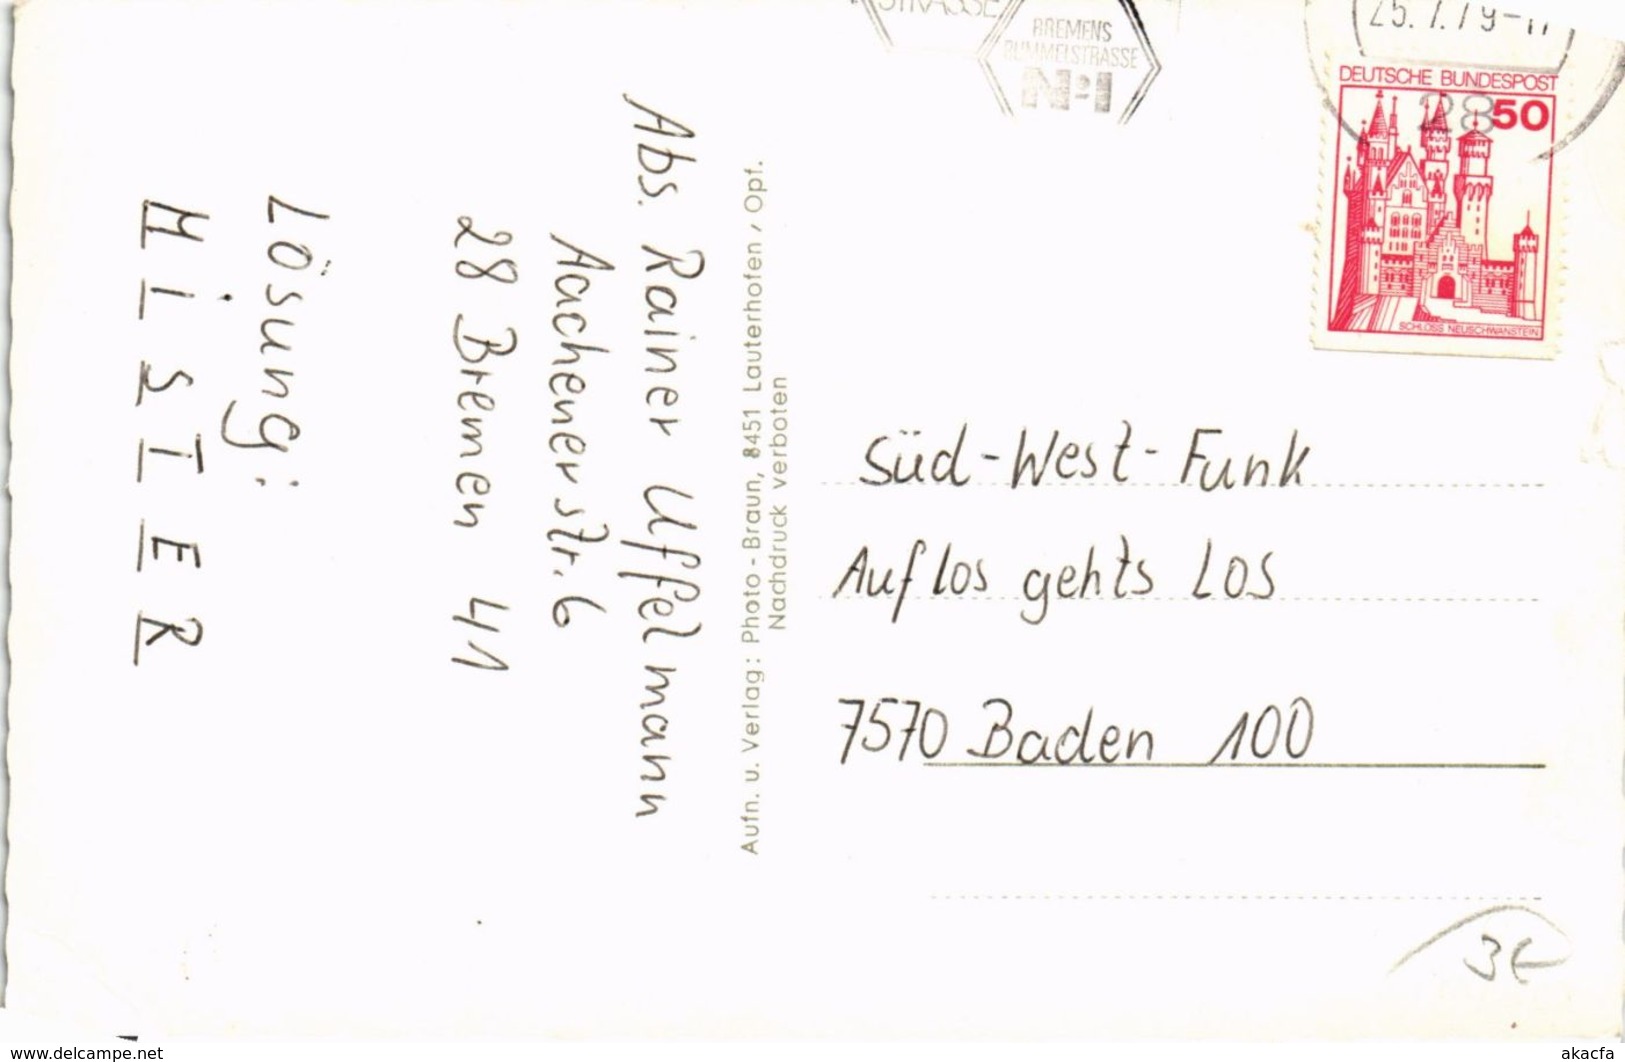 STRASSE
BREMENS
BUMMELSTRASSE
No1
25.7.79-17
28
DEUTSCHE BUNDESPOST
50
SCHLOSS NEUSCHWANSTEIN
Abs. Rainer Uffelmann
Aachenerstr. 6
28 Bremen 41
Lösung:
MISTER
Aufn. u. Verlag: Photo-Braun, 8451 Lauterhofen / Opf.
Nachdruck verboten
Süd-West-Funk
Auf los gehts Los
7570 Baden 100
3€
www.delcampe.net
akacfa